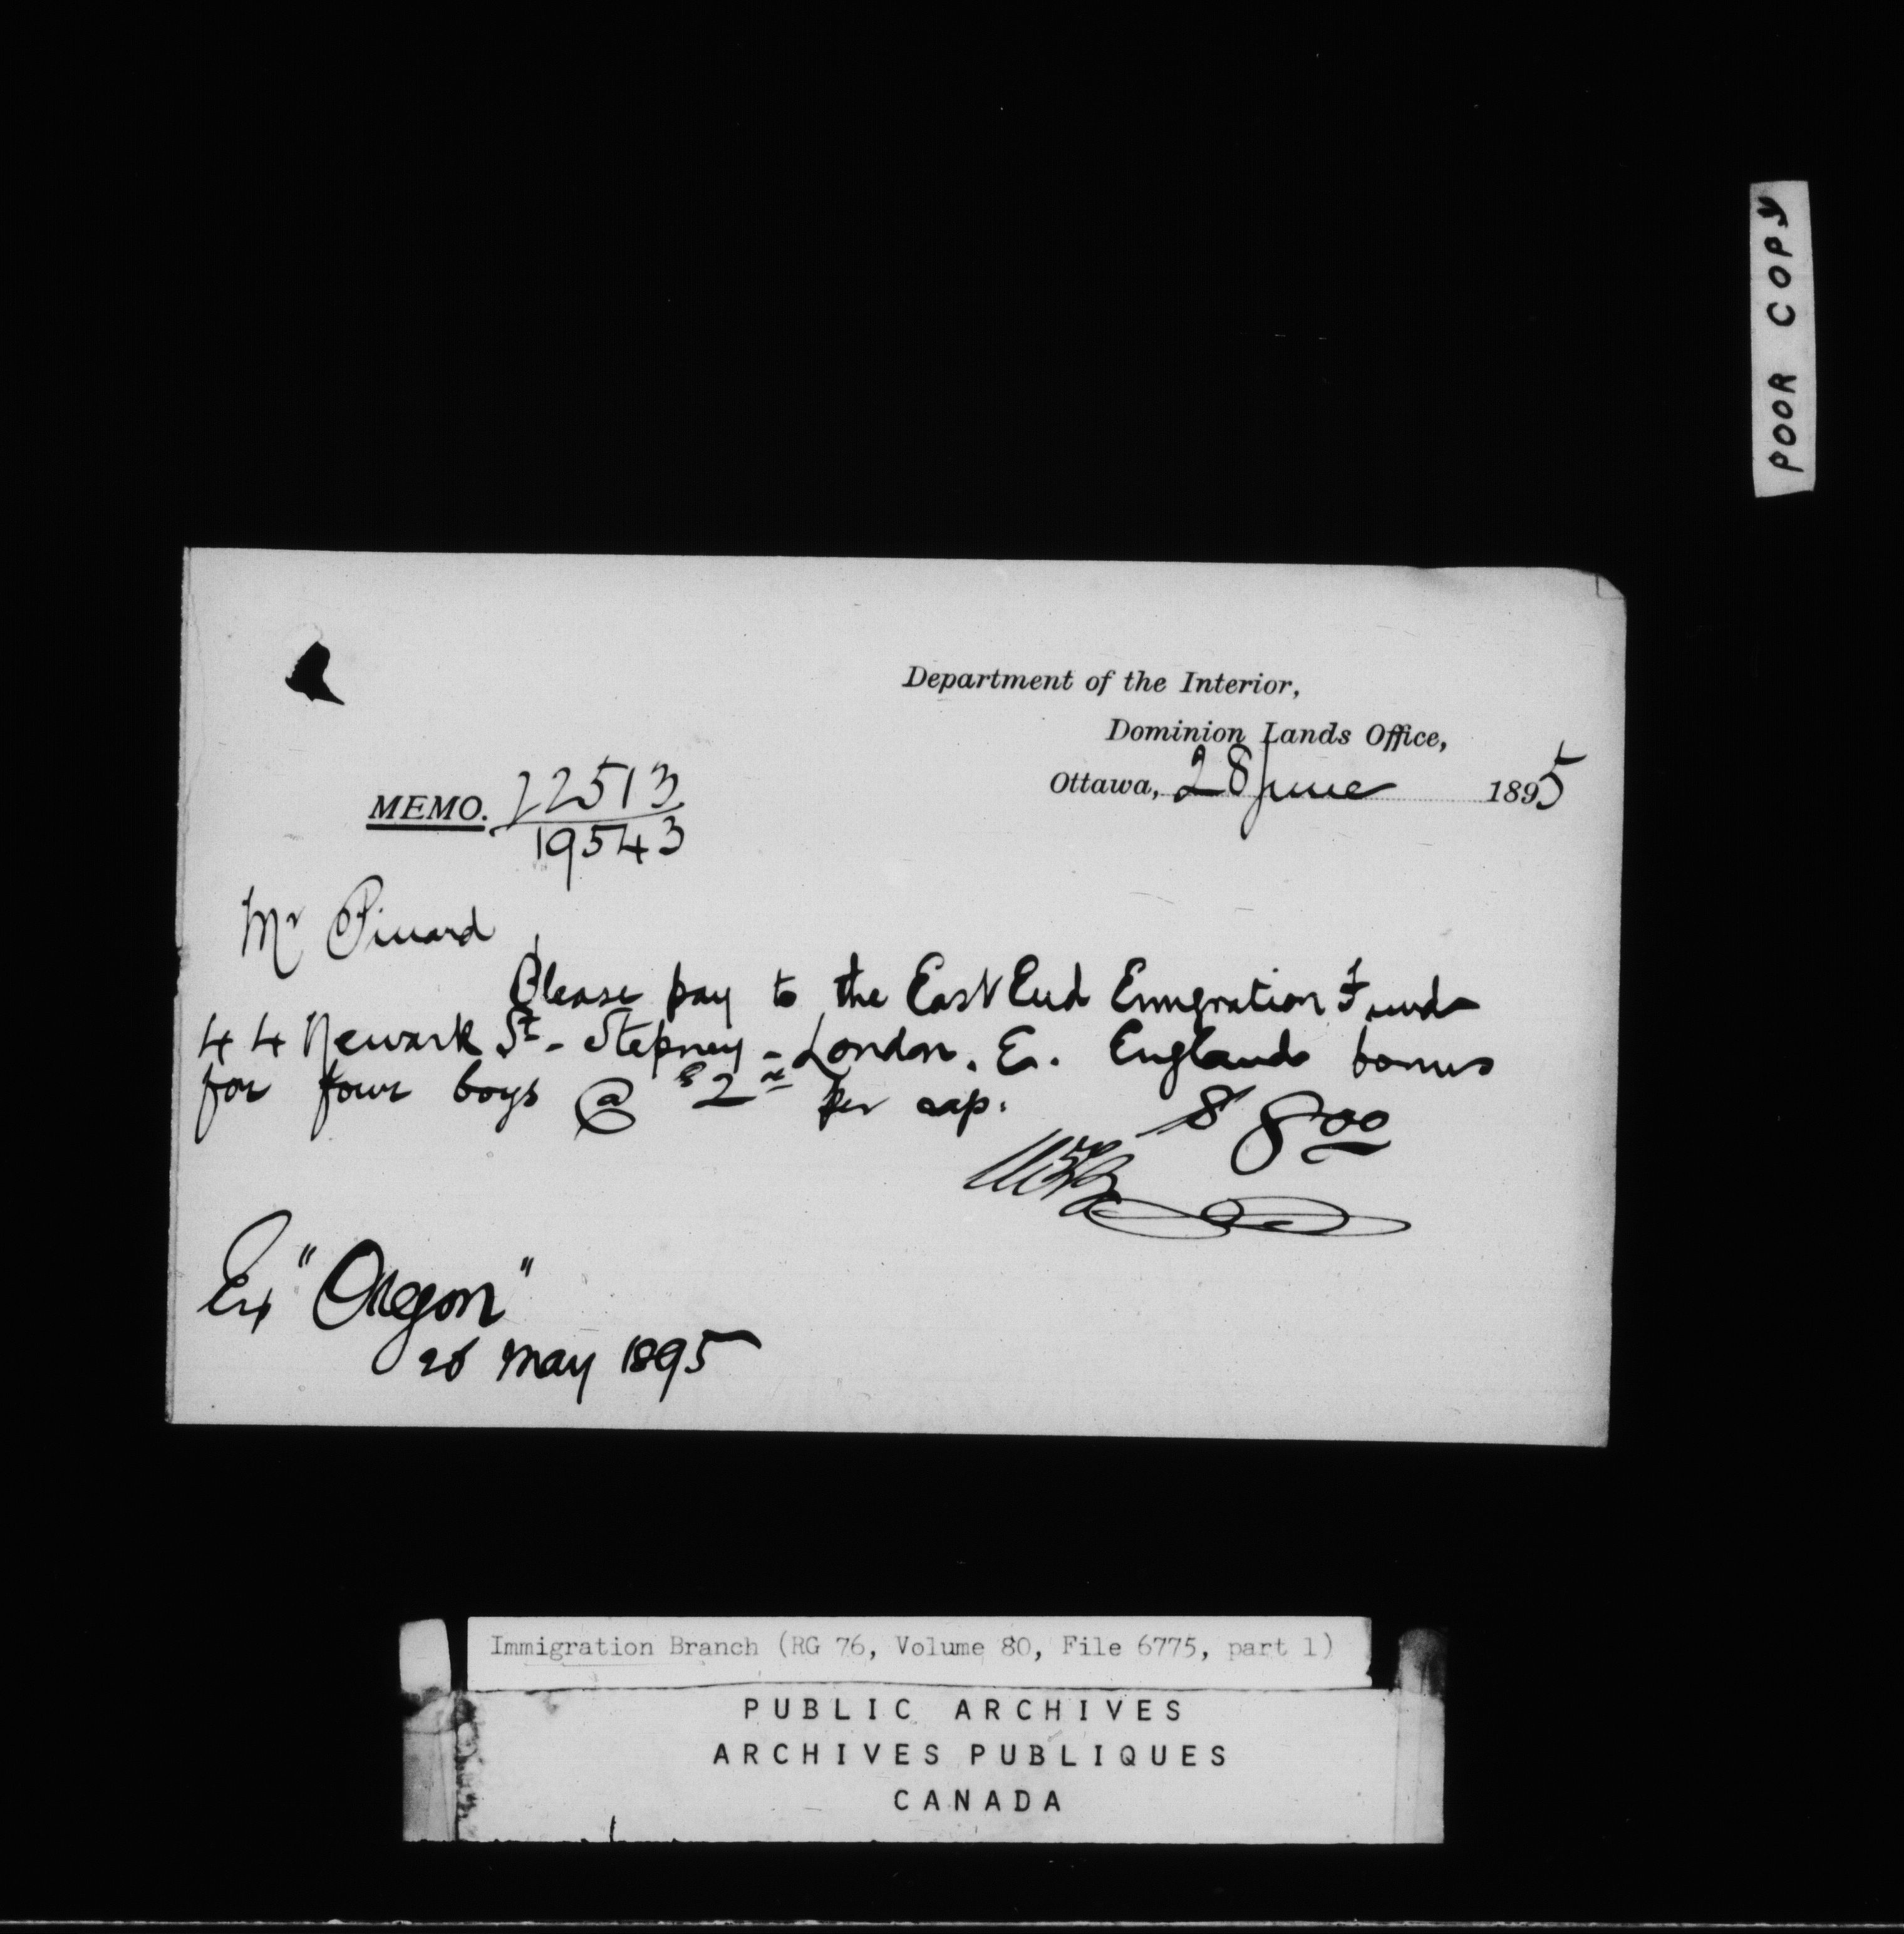 POOR COPY
Department of the Interior,
Dominion Lands Office,
Ottawa, 28 June 1895
MEMO. 22513
19543
Mr Pinard
Please pay to the East End Emigration Fund
44 Newark St - Stepney - London. E. England bonus
for four boys @ $2 per cap.
$8.00
Ex "Oregon"
26 May 1895
Immigration Branch (RG 76, Volume 80, File 6775, part 1)
PUBLIC ARCHIVES
ARCHIVES PUBLIQUES
CANADA